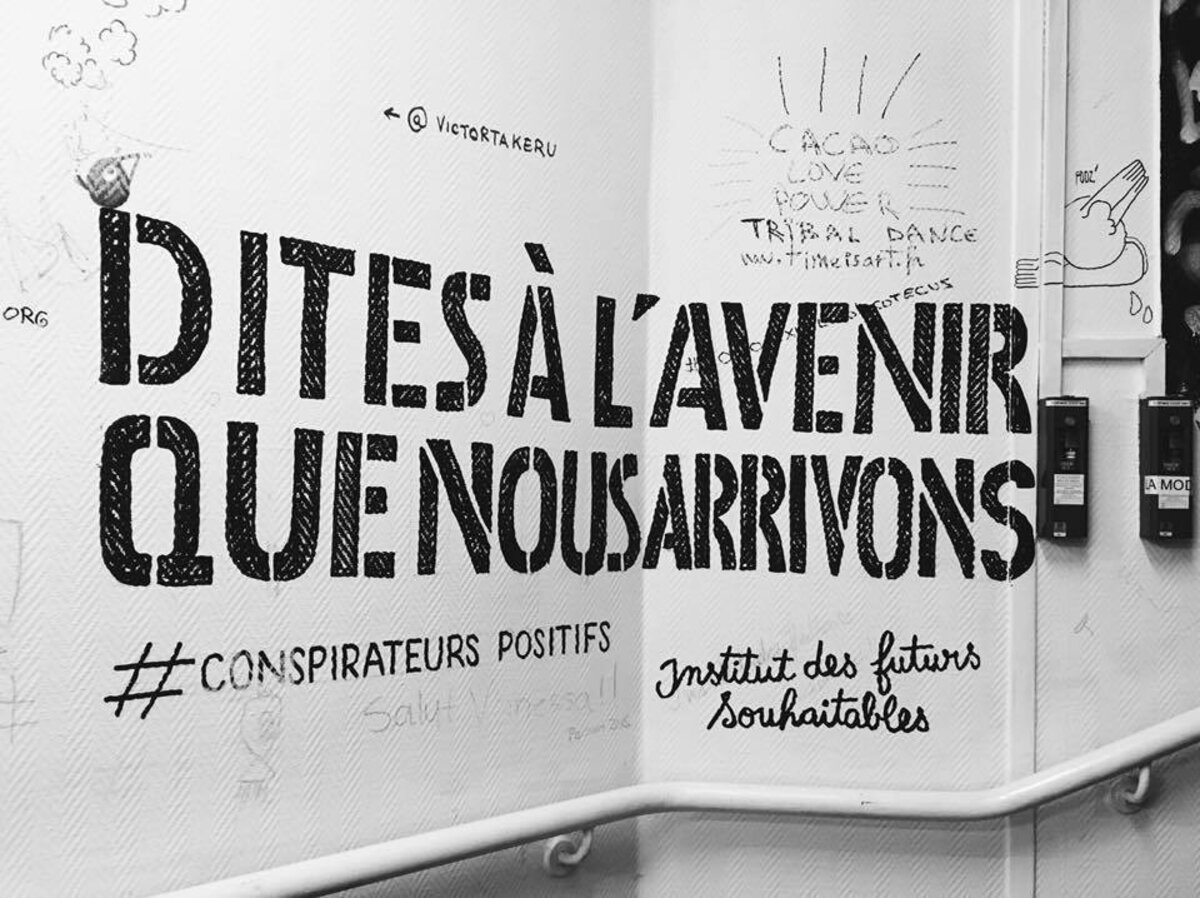 ← @ VICTORTAKERU
CACAO
LOVE
POWER
TRIBAL DANCE
www.timeisart.fr
PODZ'
ORG
DITES À L'AVENIR
QUE NOUS ARRIVONS
LA MOD
#CONSPIRATEURS POSITIFS
Salut Vanessa!!
Institut des futurs
Souhaitables